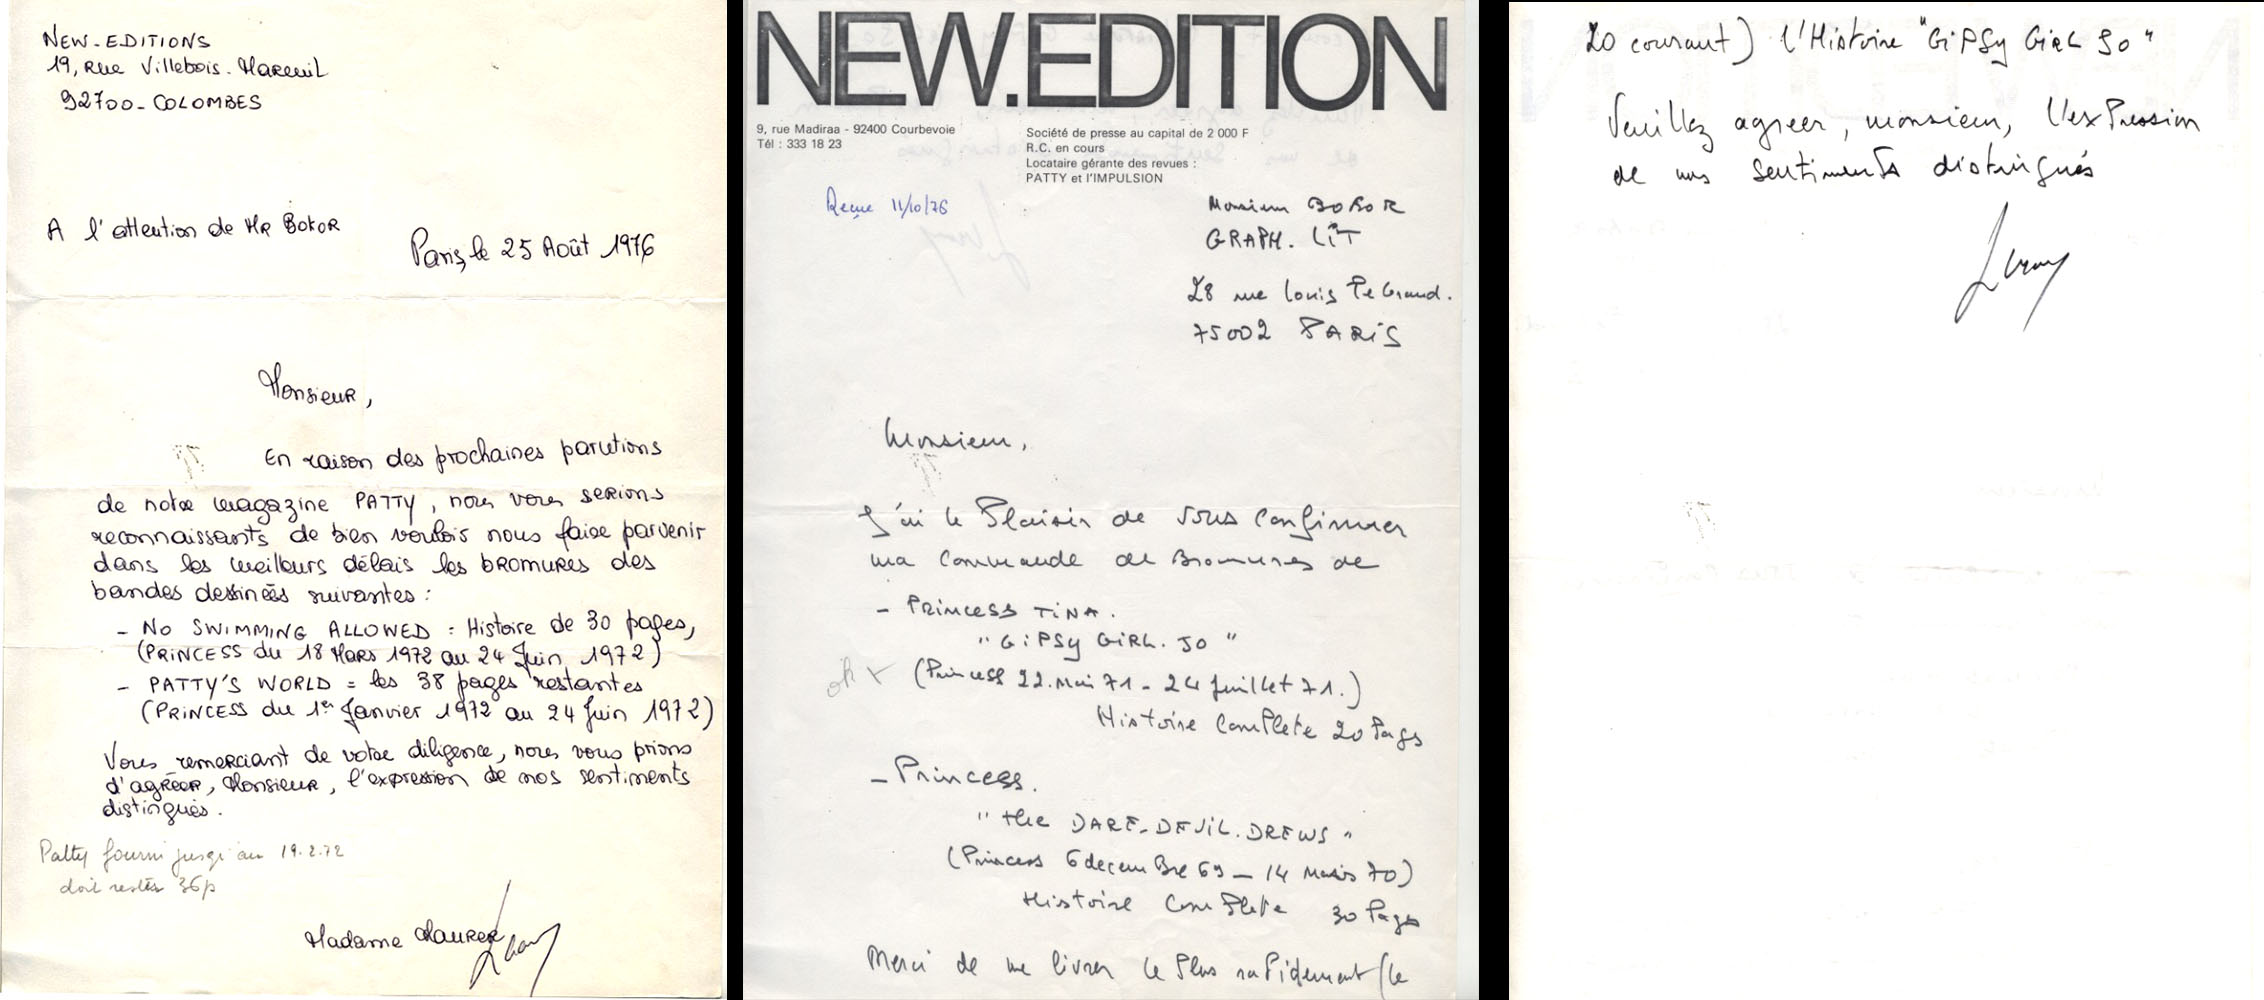 NEW-EDITIONS
19, Rue Villebois-Mareuil
92700-COLOMBES
A l'attention de MR BOKOR
Paris, le 25 Août 1976
Monsieur,
En raison des prochaines parutions
de notre magazine PATTY, nous vous serions
reconnaissants de bien vouloir nous faire parvenir
dans les meilleurs délais les bromures des
bandes dessinées suivantes :
- NO SWIMMING ALLOWED = Histoire de 30 pages,
(PRINCESS du 18 Mars 1972 au 24 Juin 1972)
- PATTY'S WORLD = les 38 pages restantes
(PRINCESS du 1er Janvier 1972 au 24 Juin 1972)
Vous remerciant de votre diligence, nous vous prions
d'agréer, Monsieur, l'expression de nos sentiments
distingués.
Patty fourni jusqu'au 19.2.72
doit rester 36p
Madame MAURER
NEW.EDITION
9, rue Madiraa - 92400 Courbevoie
Tél : 333 18 23
Société de presse au capital de 2 000 F
R.C. en cours
Locataire gérante des revues :
PATTY et l'IMPULSION
Reçue 11/10/76
Monsieur BOKOR
GRAPH. LIT
28 rue Louis Le Grand.
75002 PARIS
Monsieur,
J'ai le Plaisir de vous Confirmer
ma Commande de Bromures de
- PRINCESS TINA.
"GIPSY GIRL. JO"
ok
(Princess 22. Mai 71 - 24 juillet 71.)
Histoire Complete 20 Pages
- Princess.
"the DARE-DEVIL. DREWS"
(Princess 6 decemBre 69 - 14 Mars 70)
Histoire ComPlete 30 Pages
Merci de me livrer le Plus raPidement (le
20 courant) l'Histoire "GIPSY GIRL JO"
Veuillez agreer, monsieur, l'exPression
de nos sentiments distingués